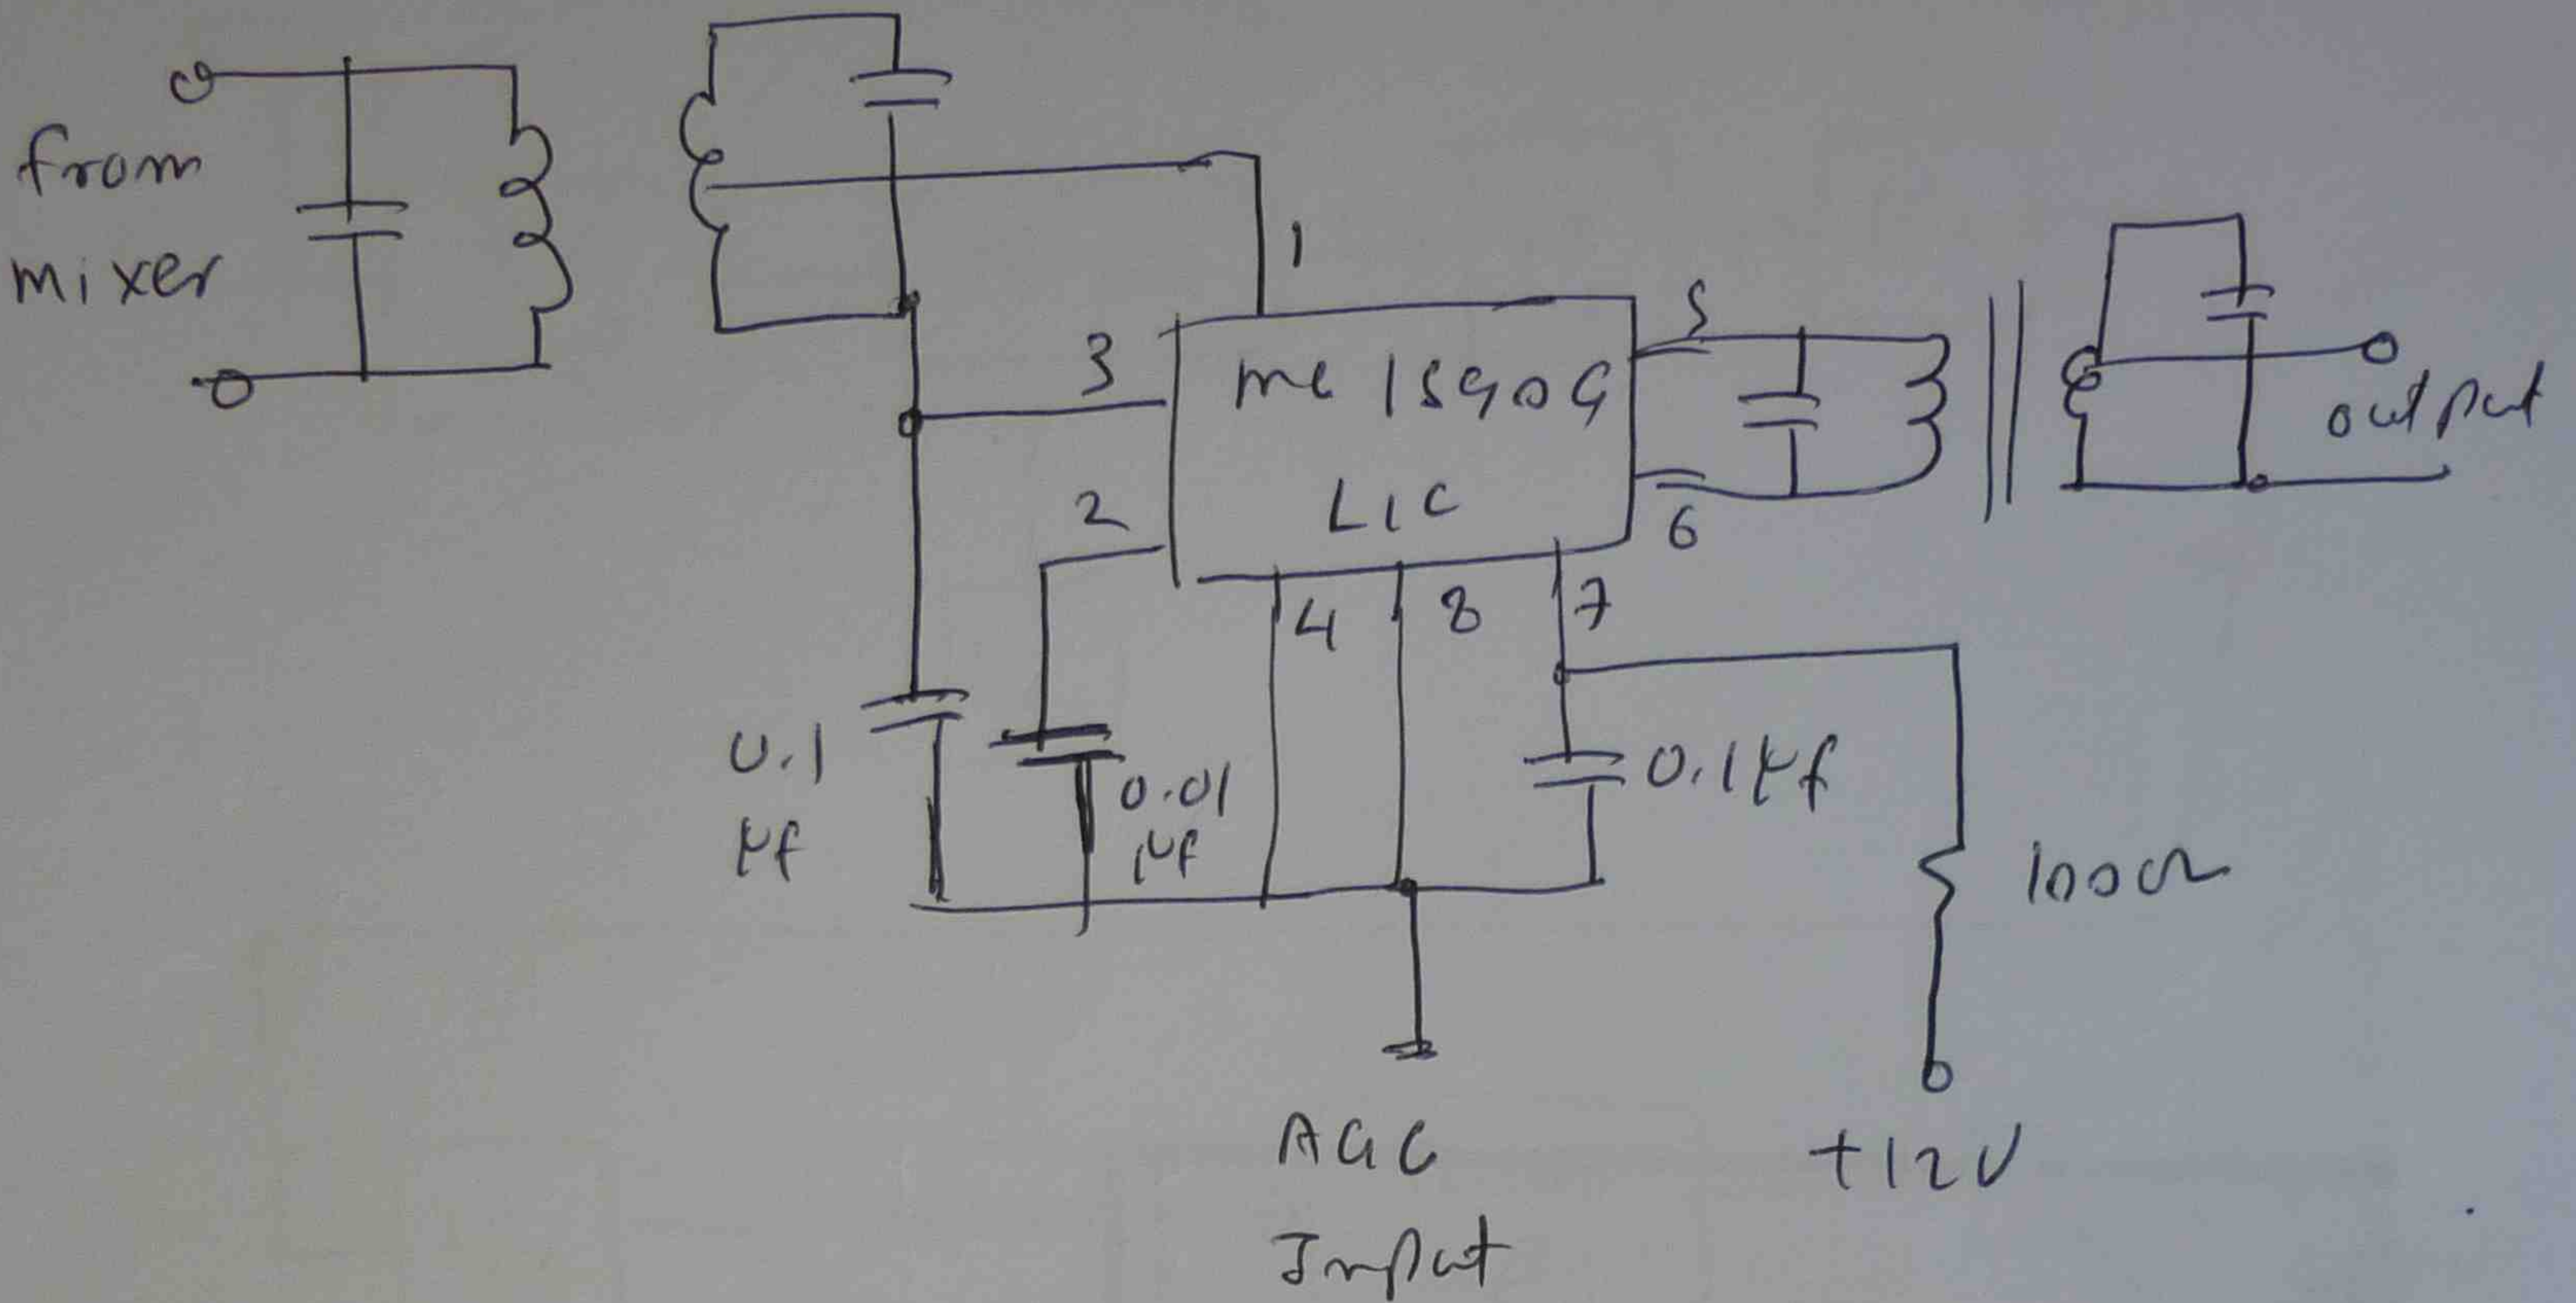 from
mixer
1
3
mc 1590G
5
2
LIC
6
output
4
8
7
0.1
μf
0.01
μf
0.1μf
100Ω
AGC
Input
+12V